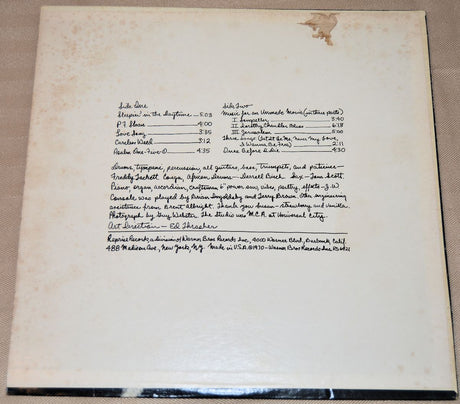 Side One
Sleepin' in the Daytime — 5:03
P.F. Sloan — 4:00
Love Song — 3:35
Careless Weed — 3:12
Psalm One-Five-0 — 4:35
Side Two
Music for an Unmade Movie (in three parts)
I Songseller — 3:40
II Dorothy Chandler Blues — 6:18
III Jerusalem — 5:00
Three Songs (Let It Be Me, Never My Love,
I Wanna Be Free) — 2:11
Once Before I Die — 4:30
Drums, tympani, percussion, all guitars, bass, trumpets, and patience —
Freddy Tackett. Conga, African drums — Darrell Buck. Sax — Tom Scott.
Piano, organ accordion, craftsmen 6" power saw, vibes, poetry, efforts — J.W.
Console was played by Brian Ingoldsby and Terry Brown. Other engineering
assistance from Brent Albright. Thank you Susan — strawberry and vanilla.
Photograph by Guy Webster. The studio was M.C.A. at Universal City.
Art Direction — Ed Thrasher
Reprise Records, a division of Warner Bros Records Inc., 4000 Warner Blvd., Burbank, Calif.
488 Madison Ave., New York, N.Y. made in U.S.A. ©1970 — Warner Bros Records Inc RS 6421